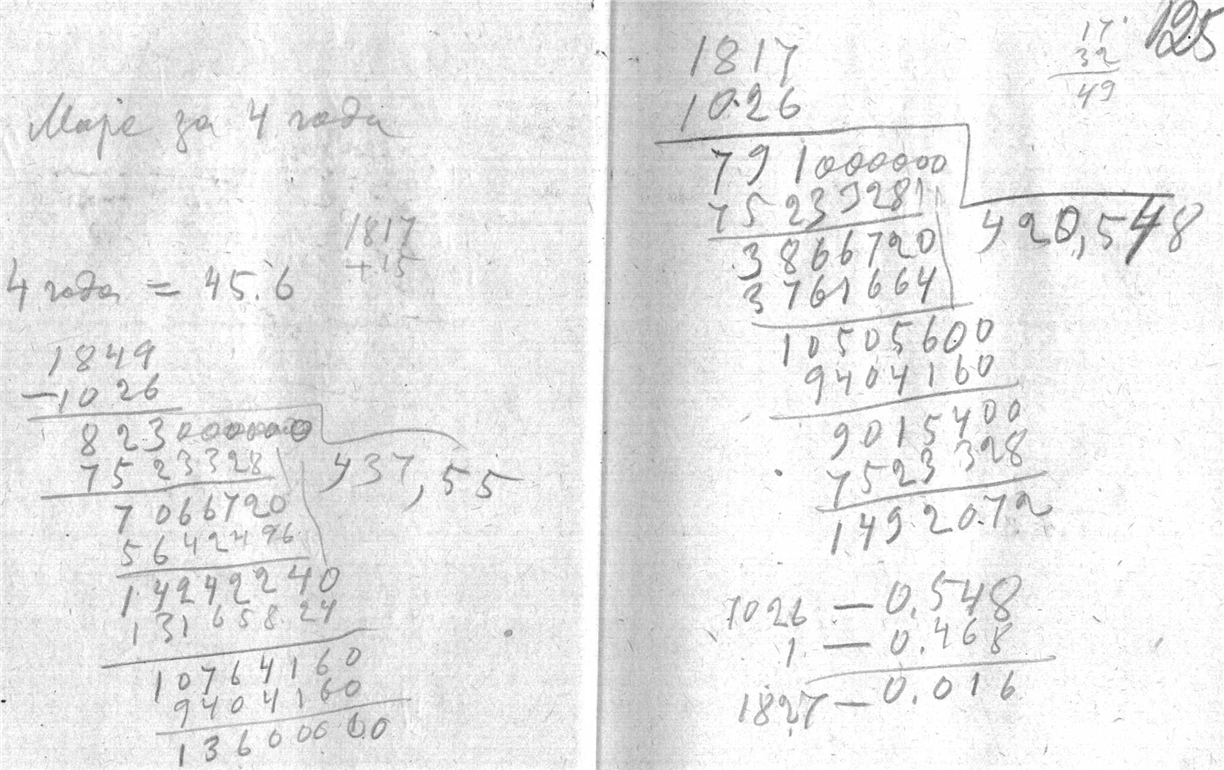 за 4 года
1817
+15
4 года = 45.6
1849
-1026
823000000
7523328
7066720
5642496
14242240
13165824
10764160
9404160
136000000
437,55
125
17
32
49
1817
1026
791000000
75233281
3866720
3761664
10505600
9404160
9015400
7523328
1492072
420,548
1026 — 0.548
1 — 0.468
1827 — 0.016